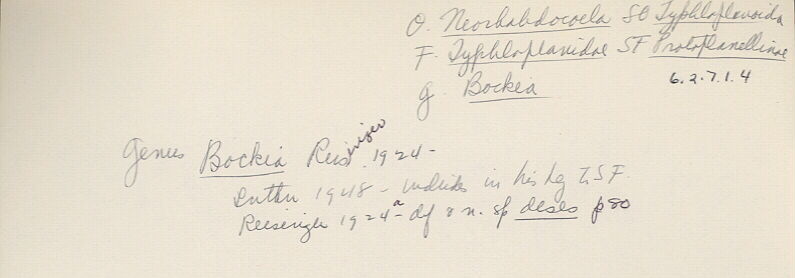 O. Neorhabdocoela SO Typhloplanoida
F. Typhloplanidae SF Protoplanellinae
g. Bockia 6.2.7.1.4
Genus Bockia Reisinger 1924 -
Luther 1948 - includes in his key to SF.
Reisinger 1924a - df & n. sp deses p 80